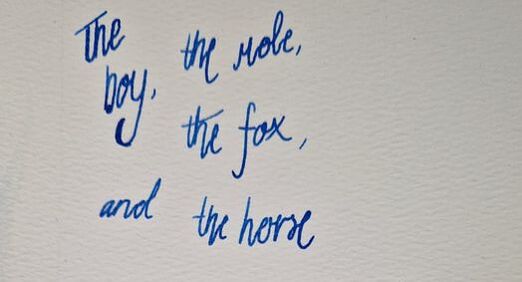 The
boy, the mole,
the fox,
and the horse